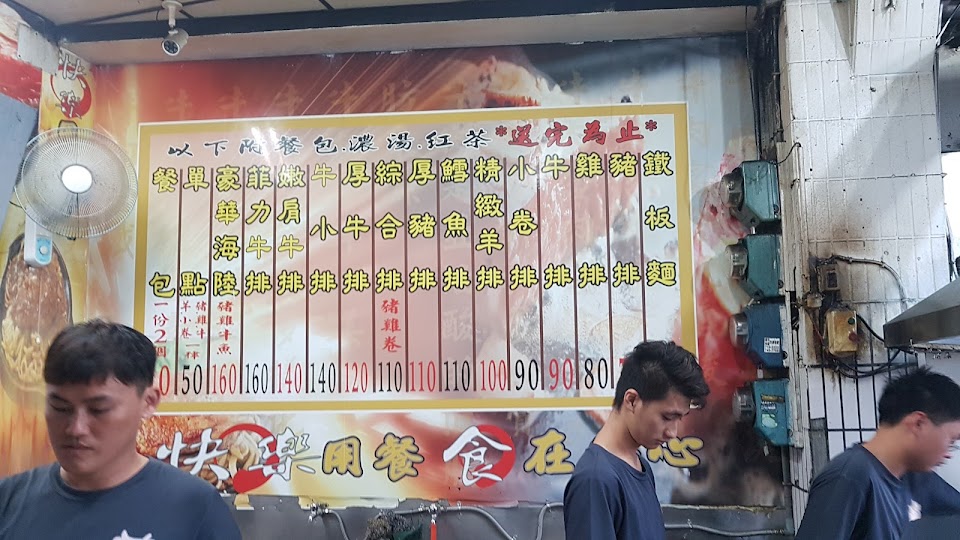 快樂
以下附餐包.濃湯.紅茶 *送完為止*
鐵板麵
豬排
雞排 80
牛排 90
小卷排 90
精緻羊排 100
鱈魚排 110
厚豬排 110
綜合排 豬雞卷 110
厚牛排 120
牛小排 140
嫩肩牛排 140
菲力牛排 160
豪華海陸 豬雞牛魚 160
單點 豬雞牛羊小卷一律 50
餐包 一份2個
快樂用餐 食在心